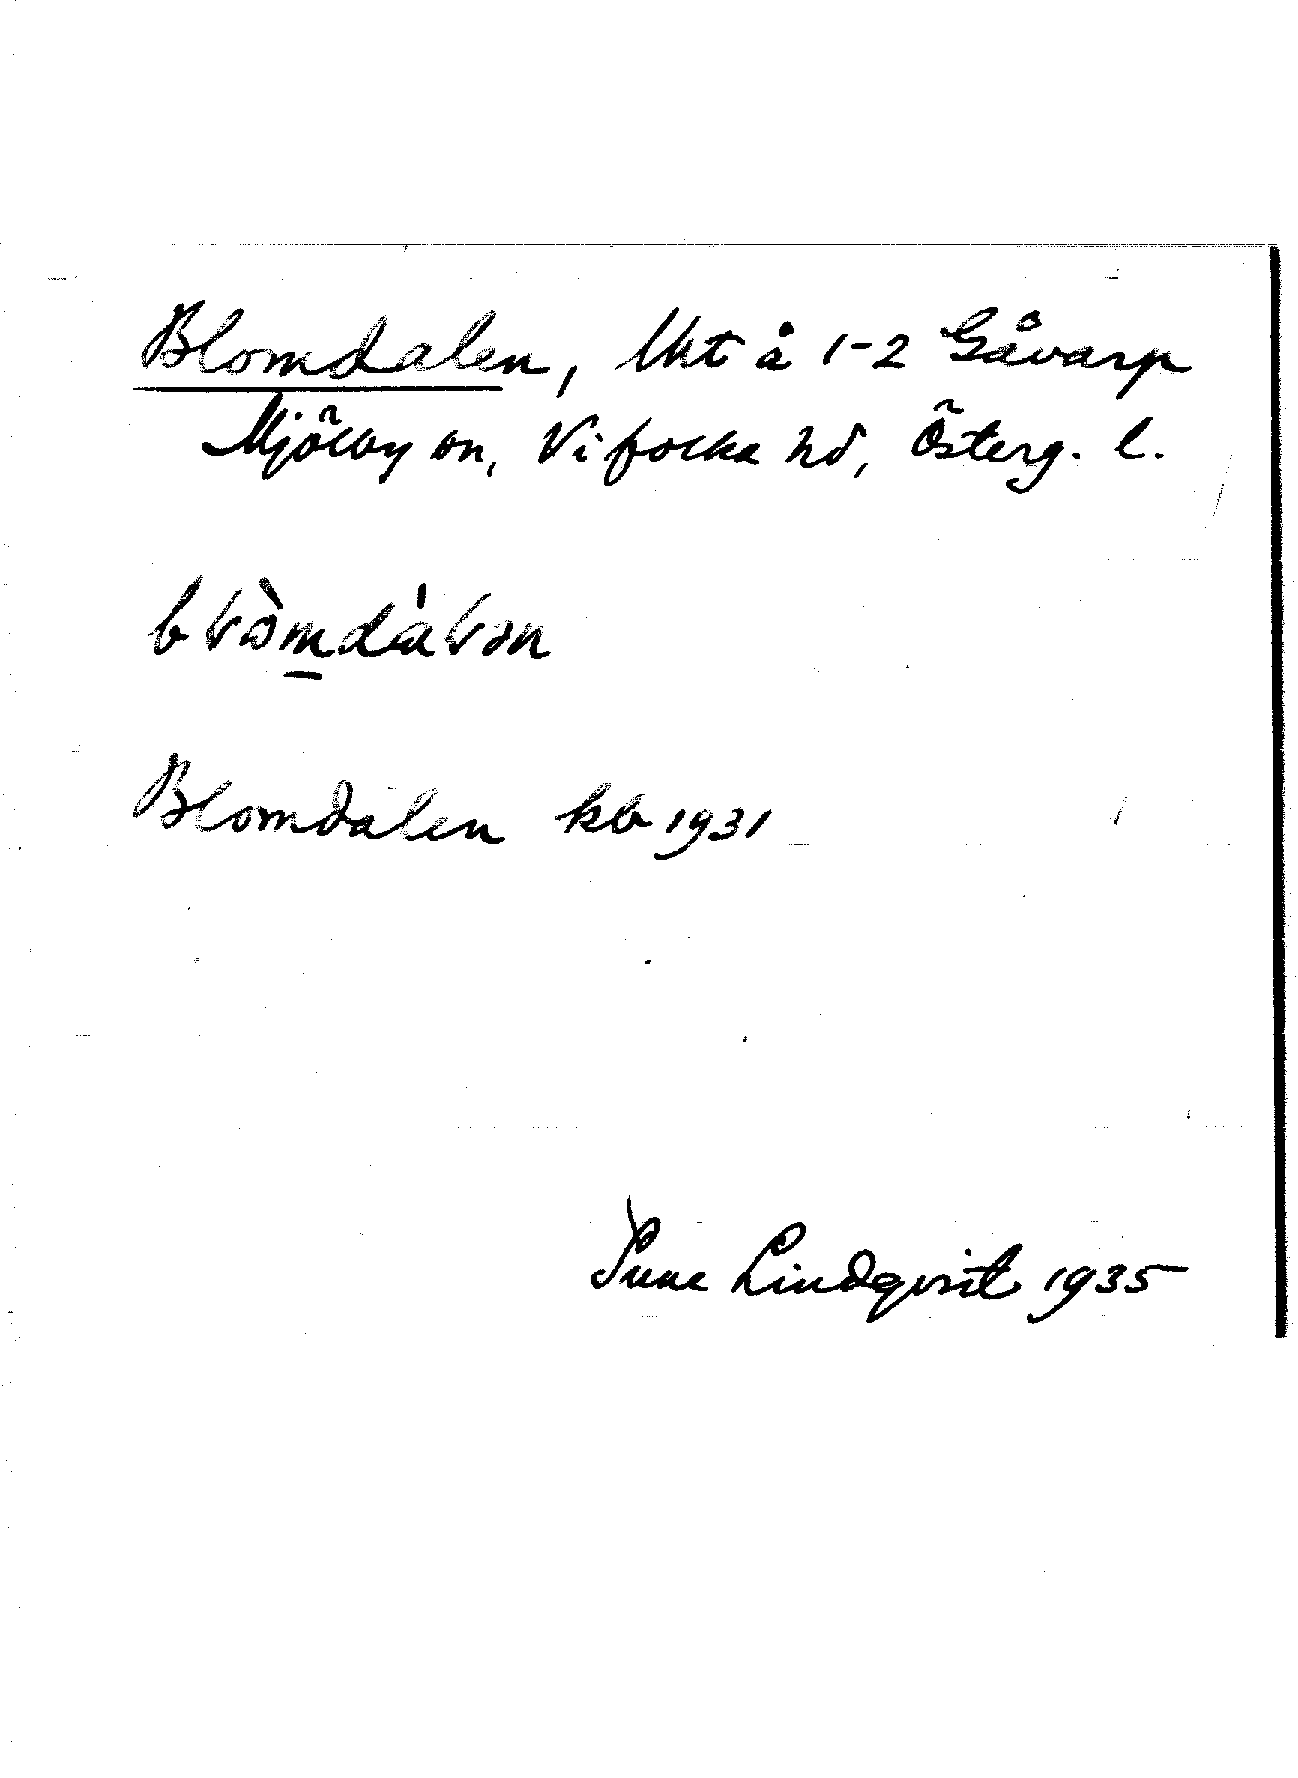 Blomdalen, Uht å 1-2 Gåvarp
Mjölby sn, Vifolka hd, Österg. l.
Blomdalen kb 1931
Sune Lindqvist 1935